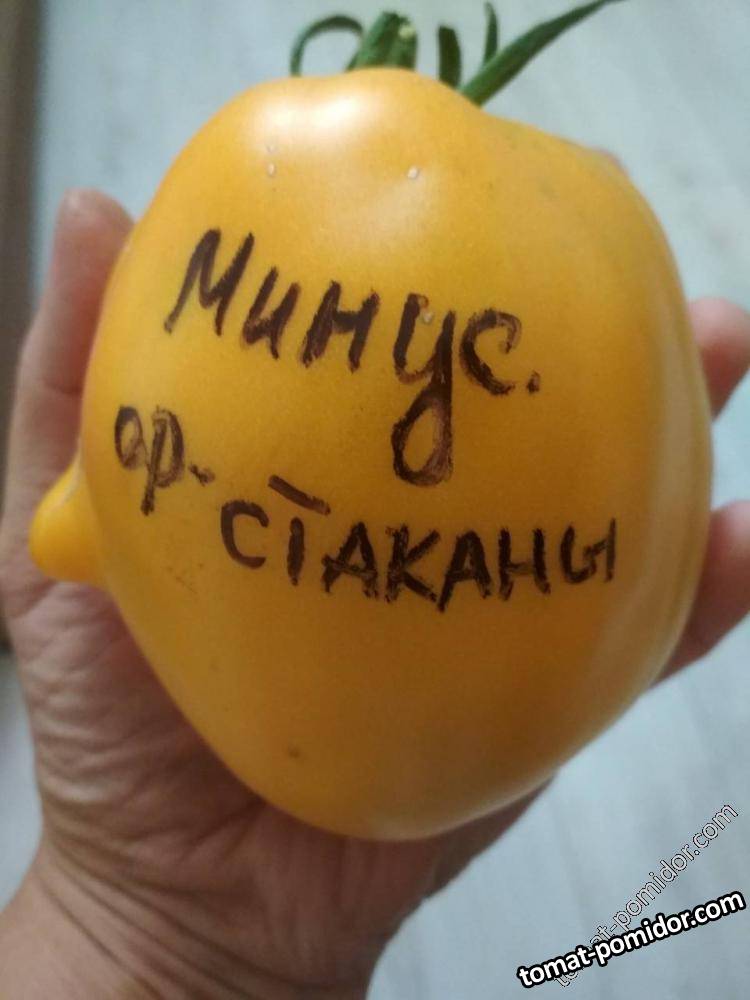 Минус.
ор-
стаканы
tomat-pomidor.com
tomat-pomidor.com